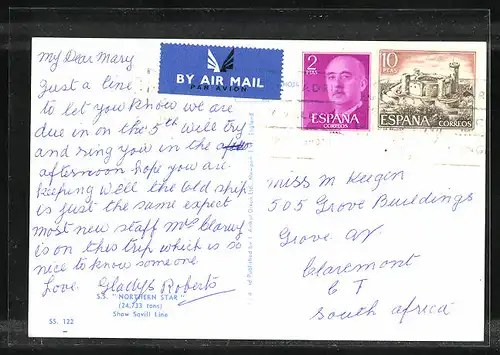 My Dear Mary
Just a line
to let you know we are
due in on the 5th Will try
and ring you in the
afternoon hope you are
keeping well the old ship
is just the same expect
most new staff Mrs
is on this trip which is so
nice to know someone
Love Gladys Roberts
S.S. "NORTHERN STAR"
(24,733 tons)
Show Savill Line
SS. 122
BY AIR MAIL
PAR AVION
2
PTAS
ESPAÑA
CORREOS
10
PTAS
ESPAÑA
CORREOS
Miss M
505 Grove Buildings
Grove Av
Claremont
C T
South Africa